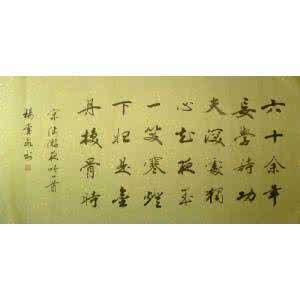 六十余年
妄學詩功
夫深處獨
心知夜來
一笑寒燈
下始是金
丹換骨時
宋陸游夜吟一首
楊